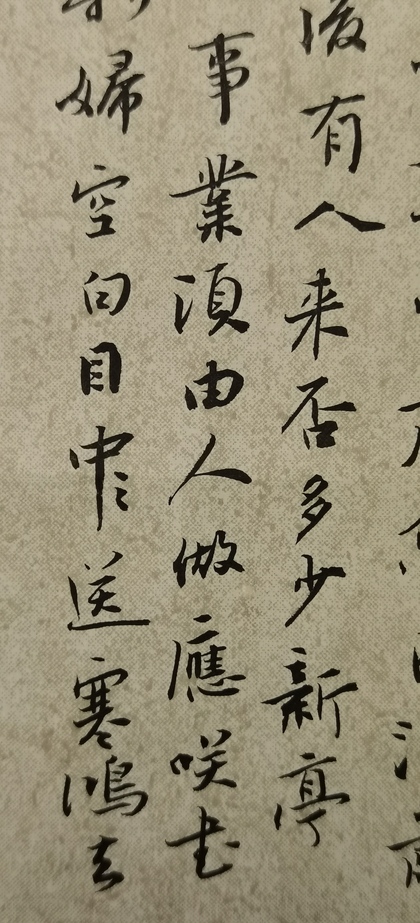 後有人来否多少新亭
事業須由人做應咲书
婦空向目中送寒鴻去